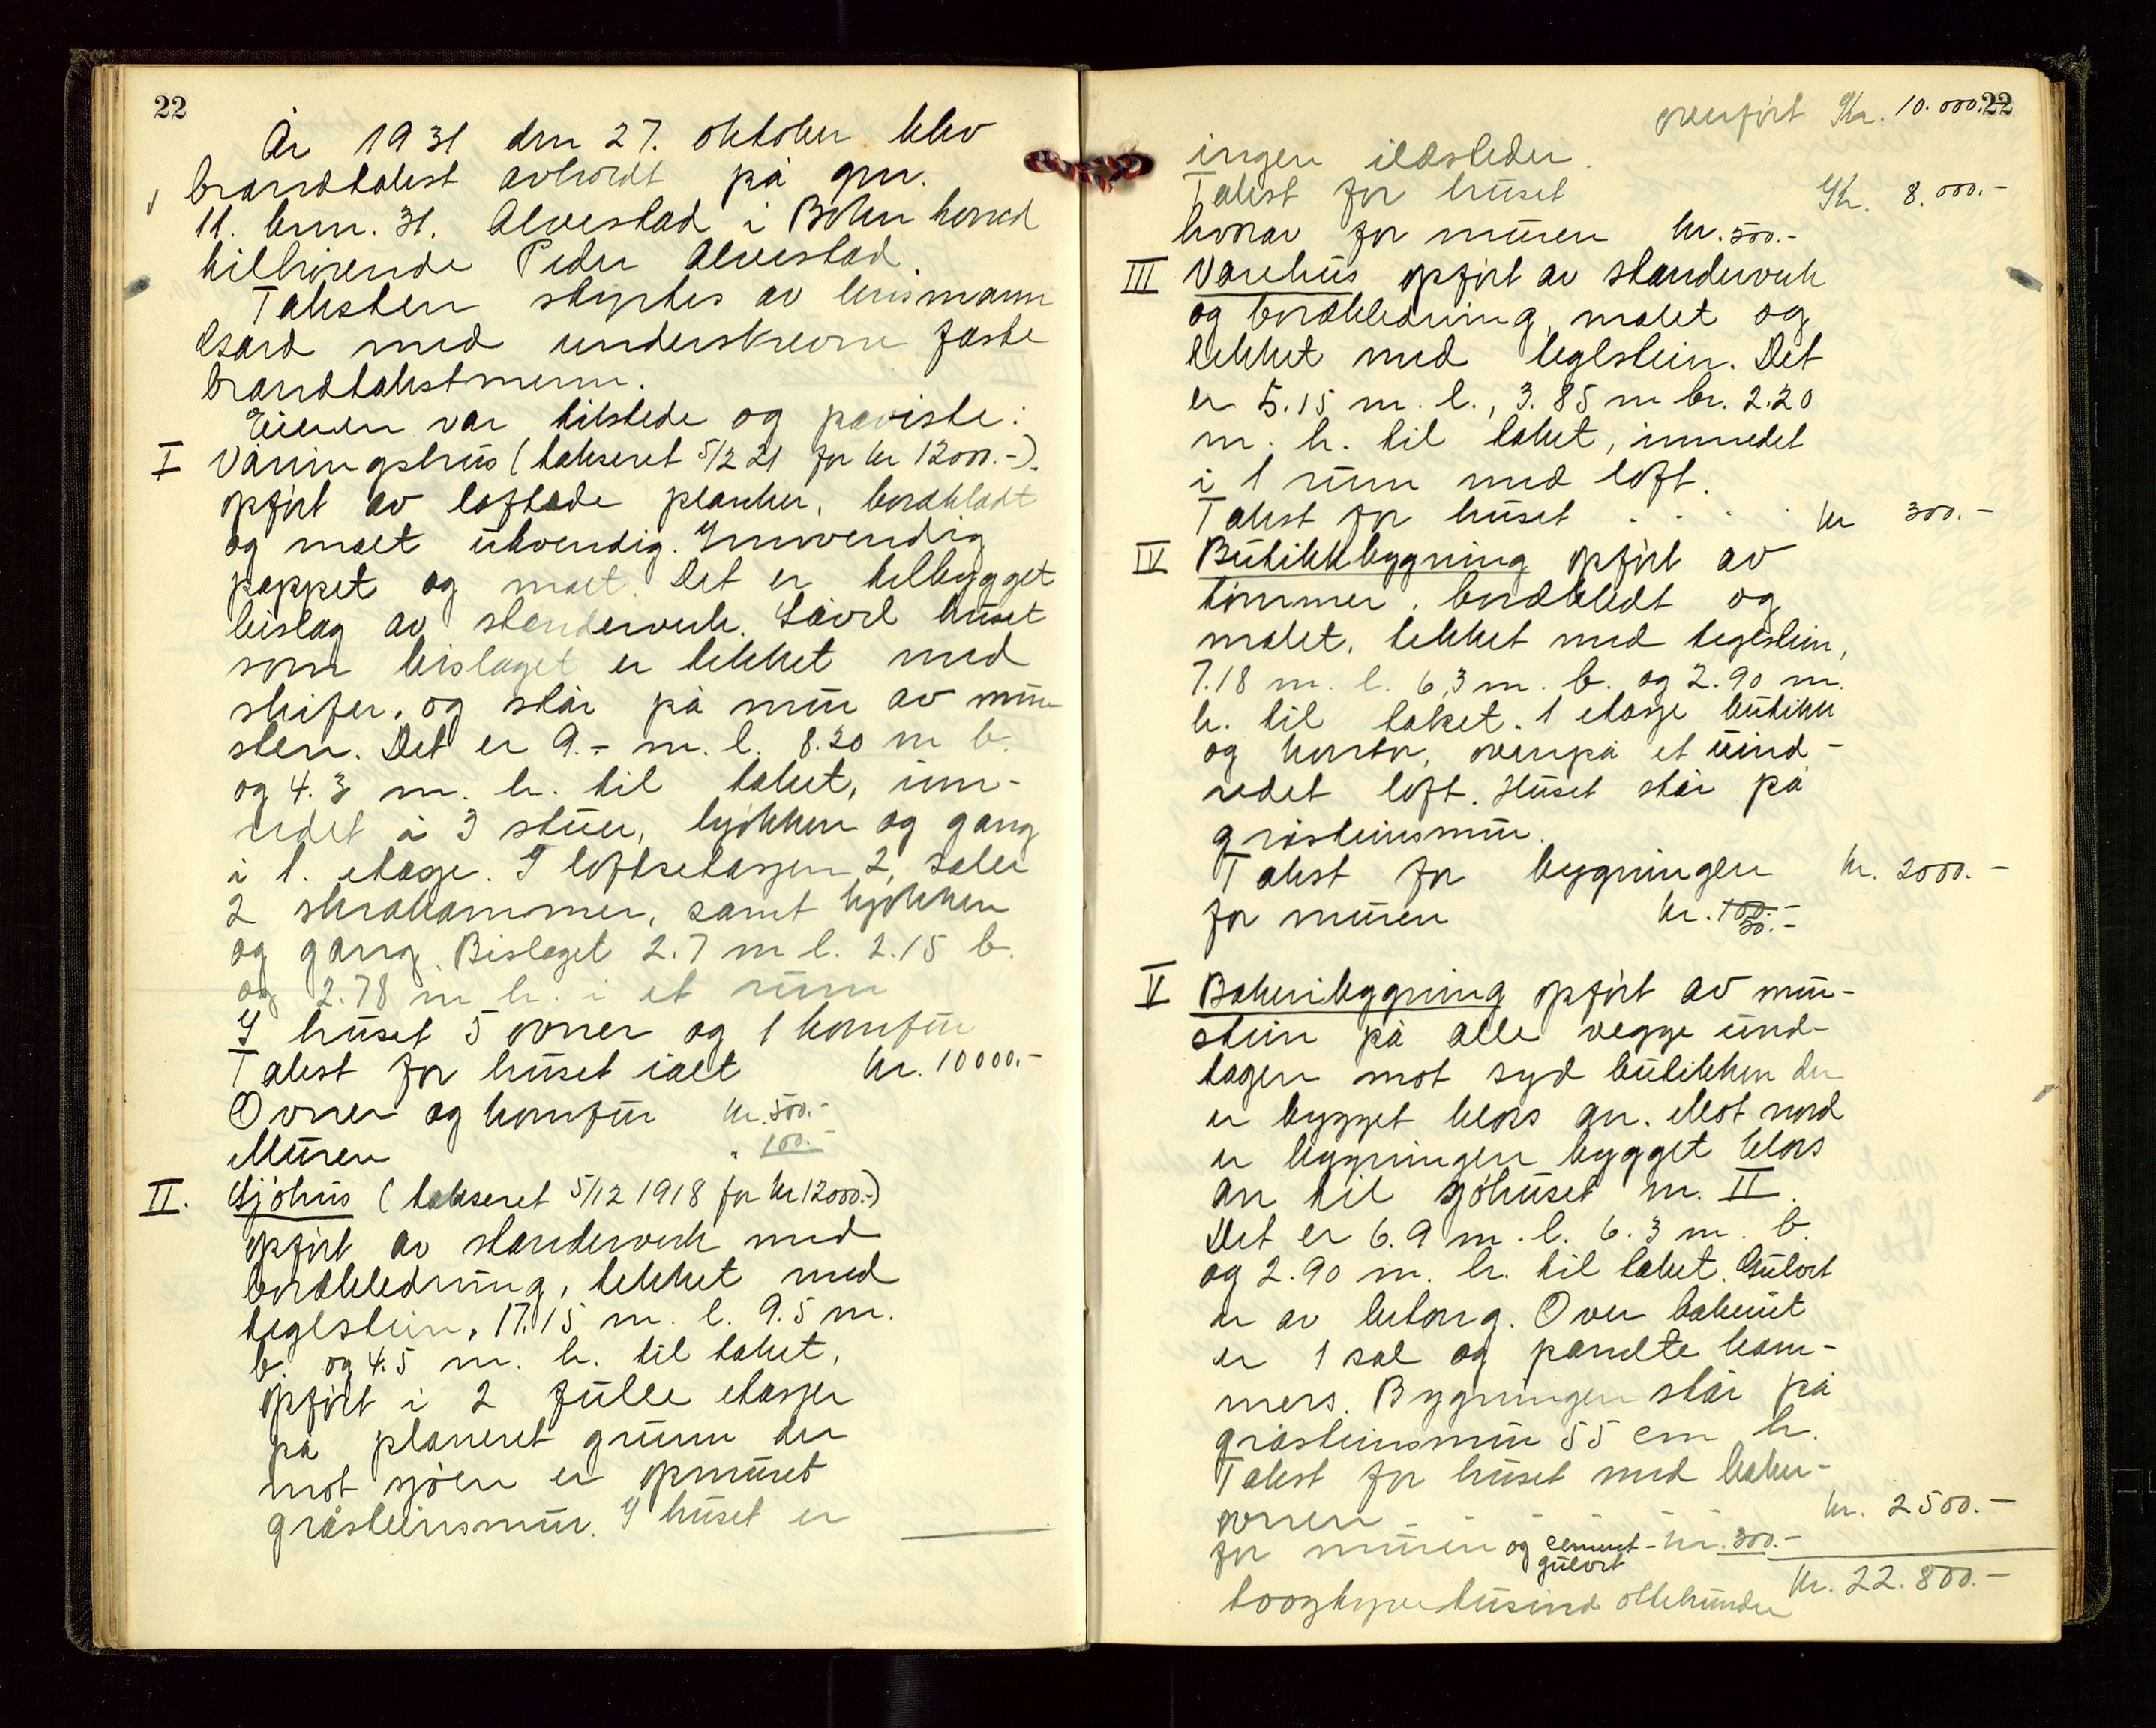 22
År 1931 den 27. oktober blev
brandtakst avholdt på gnr.
11. bnr. 31. Alvestad i Bokn herred
tilhørende Peder Alvestad.
Taksten styrtes av lensmann
med underskrevne faste
brandtakstmenn.
Eieren var tilstede og påviste:
I Våningshus (takseret 5/2 21 for kr 12000.-).
opført av laftede planker, bordkladt
og malt utvendig. Innvendig
pappet og malt. Det er tilbygget
bislag av standerverk. Såvel huset
som bislaget er tekket med
skifer, og står på mur av mur
sten. Det er 9.- m. l. 8.20 m b.
og 4.3 m. h. til taket, inn-
redet i 3 stuer, kjøkken og gang
i 1. etasje. I loftsetasjen 2 saler
2 skråkammer, samt kjøkken
og gang. Bislaget 2.7 m l. 2.15 b.
og 2.78 m h. i et rum
I huset 5 ovner og 1 komfur
Takst for huset ialt kr. 10000.-
Ovner og komfur kr. 500.-
Muren " 100.-
II. Sjøhus (takseret 5/12 1918 for kr 12000.-)
opført av standerverk med
bordkledning, tekket med
teglstein, 17.15 m. l. 9.5 m.
b. og 4.5 m. h. til taket,
opført i 2 fulle etasjer
på planeret grunn der
mot sjøen er opmuret
gråsteinsmur. I huset er
overført Kr. 10.000.- 22
ingen ildsteder.
Takst for huset Kr. 8.000.-
hvorav for muren kr. 500.-
III Varehus opført av standerverk
og bordkledning, malet og
tekket med teglstein. Det
er 5.15 m. l., 3.85 m br. 2.20
m. h. til taket, innredet
i 1 rum med loft.
Takst for huset . . . . kr 300.-
IV Butikkbygning opført av
tømmer, bordkledt og
malet, tekket med teglstein,
7.18 m. l. 6,3 m. b. og 2.90 m.
h. til taket. 1 etasje butikk
og kontor, ovenpå et uind-
redet loft. Huset står på
gråsteinsmur.
Takst for bygningen kr. 2000.-
for muren kr. 100.-
50.-
V Bakeribygning opført av mur-
stein på alle vegge und-
tagen mot syd butikken der
er bygget klos an. Mot nord
er bygningen bygget klos
an til sjøhuset nr. II.
Det er 6.9 m. l. 6.3 m. b.
og 2.90 m. h. til taket. Gulvet
er av betong. Over bakeriet
er 1 sal og pandte kam-
mers. Bygningen står på
gråsteinsmur 55 cm h.
Takst for huset med baker-
ovnen kr. 2500.-
for muren og cement- kr. 300.-
gulvet
kr. 22.800.-
toogtyvetusind ottehundre